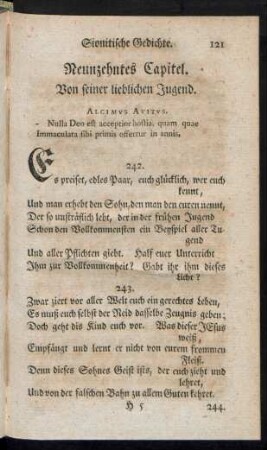 Sionitische Gedichte. 121
Neunzehntes Capitel.
Von seiner lieblichen Jugend.
ALCIMVS AVITVS.
- Nulla Deo est acceptior hostia, quam quae
Immaculata sibi primis offertur in annis.
242.
Es preiset, edles Paar, euch glücklich, wer euch
kennt,
Und man erhebt den Sohn, den man den euren nennt,
Der so unsträflich lebt, der in der frühen Jugend
Schon den Vollkommensten ein Beyspiel aller Tu-
gend
Und aller Pflichten giebt. Half euer Unterricht
Ihm zur Vollkommenheit? Gabt ihr ihm dieses
Licht?
243.
Zwar ziert vor aller Welt euch ein gerechtes Leben,
Es muß euch selbst der Neid dasselbe Zeugnis geben;
Doch geht diß Kind euch vor. Was dieser JEsus
weiß,
Empfängt und lernt er nicht von eurem frommen
Fleiß.
Denn dieses Sohnes Geist ists, der euch zieht und
lehret,
Und von der falschen Bahn zu allem Guten kehret.
H 5 244.